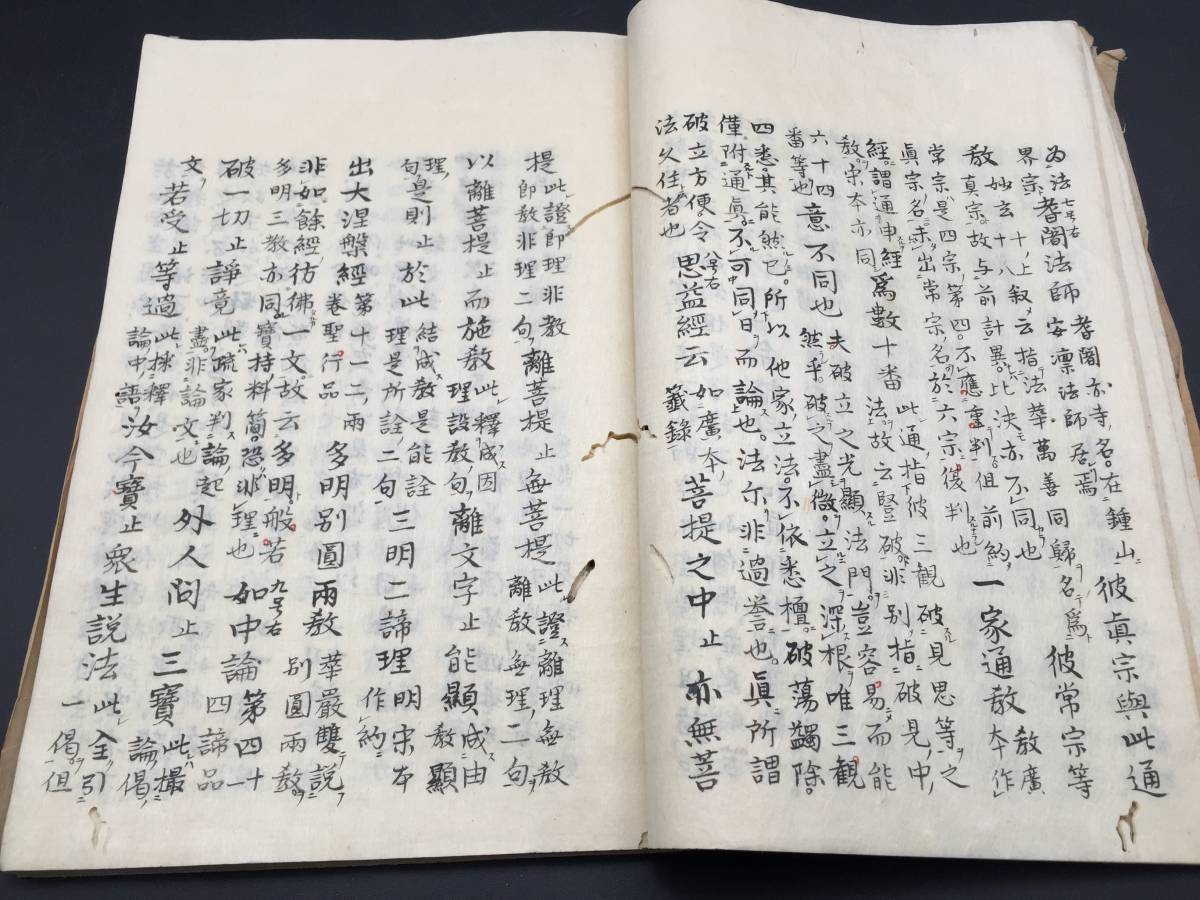 為法七号右耆闍法師 耆闍亦寺名在鍾山安凛法師居焉 彼眞宗與此通
教妙玄十上叙云指法華萬善同歸名為眞宗故与前計異比決亦不同也 彼常宗等
常宗是四宗第四不應重判但前約眞宗名未出常宗名於六宗復判也 一家通教 教廣本作
經謂通申經教宋本亦同 爲數十番 此通指彼三觀破見思等之法故云竪破非別指破見中
六十四番等也 意不同也 然乎 夫破立之光顯法門豈容易而能破之盡微立之深根唯三觀
四悉其能然已所以他家立法不依悉檀破蕩蠲除
僅附通眞不可同日而論也法尓非過誉也眞所謂
破立方便令法久住者也 八号右 思益經云 籤錄如廣本 菩提之中止亦無菩
提 此證即理非教即教非理二句 離菩提止無菩提 此證離理無教離教無理二句
以離菩提止而施教 此釋成因理設教句 離文字止能顯 成由教顯理
句 是則止於此 結成教是能詮理是所詮二句 三明二諦理 明宋本作約
出大涅槃經 第十一二兩卷聖行品 多明別圓兩教 華嚴雙説別圓兩教
非如餘經彷佛一文故云多明三教亦同寶持料簡恐非理也 多明般若 九号右 如中論 第四十一四諦品
破一切止諍竟 此疏家判論起盡非論文也 外人問止三寶 此撮論偈
文 若受止等過 此撮釋論中語 汝今寶止衆生説法 此全引一偈但